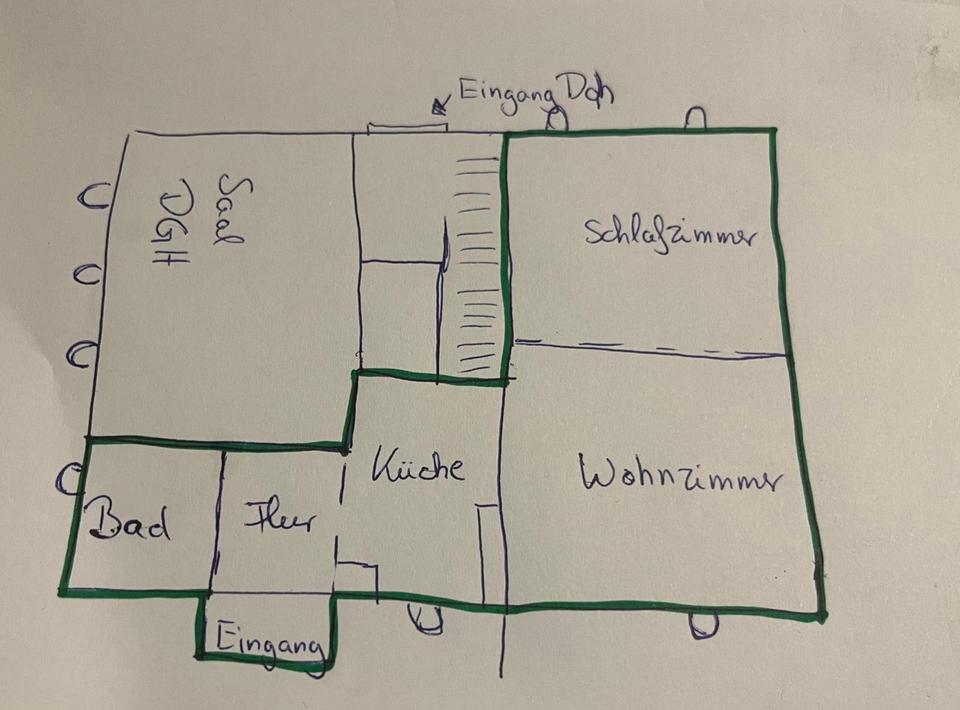 Eingang Dgh
Saal
DGH
Schlafzimmer
Küche
Wohnzimmer
Bad
Flur
Eingang